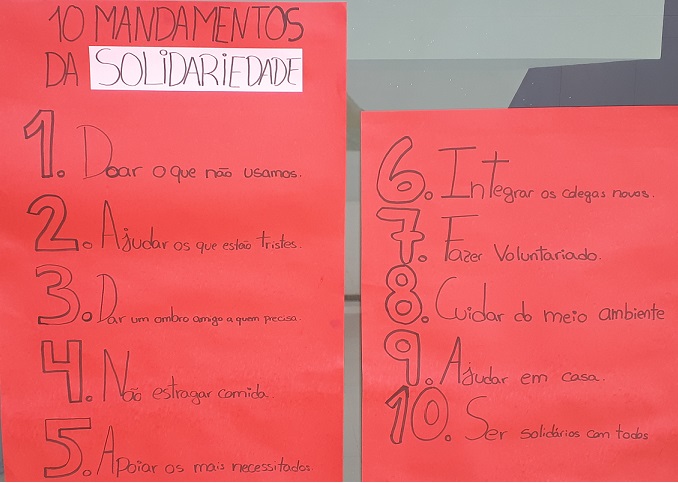 10 MANDAMENTOS
DA SOLIDARIEDADE
1. Doar o que não usamos.
2. Ajudar os que estão tristes.
3. Dar um ombro amigo a quem precisa.
4. Não estragar comida.
5. Apoiar os mais necessitados.
6. Integrar os colegas novos.
7. Fazer Voluntariado.
8. Cuidar do meio ambiente
9. Ajudar em casa.
10. Ser solidários com todos